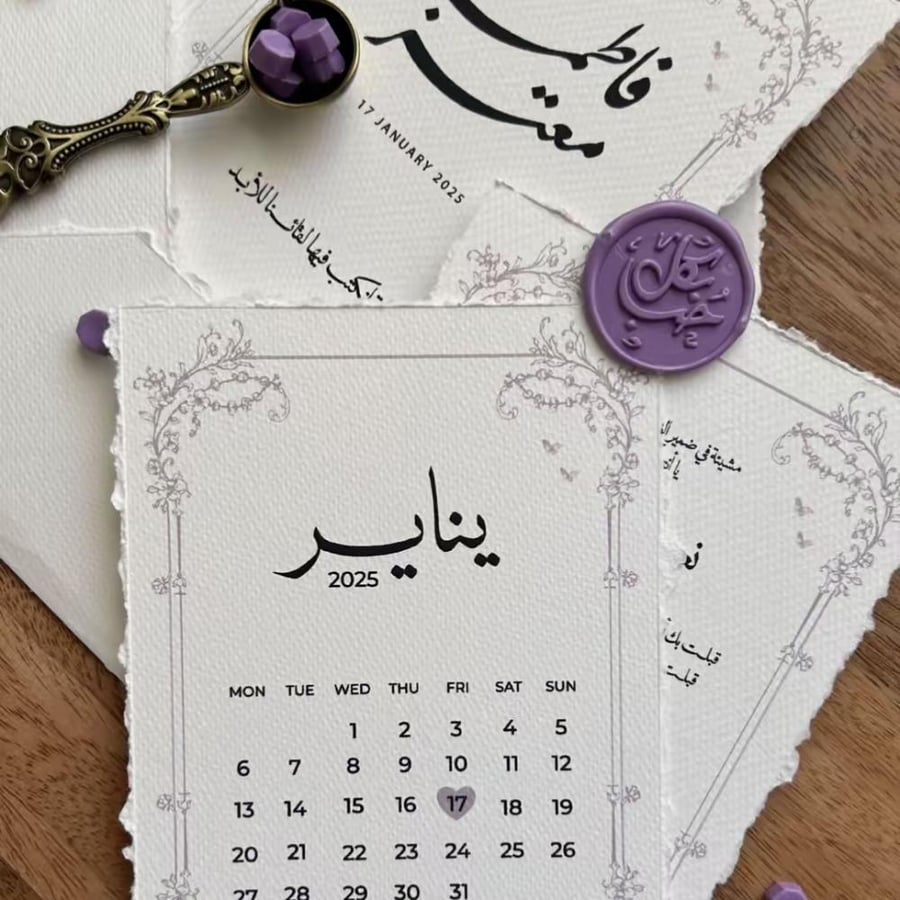 فاطمة
معتز
17 JANUARY 2025
تكتب فيها لقائنا للأبد
يناير
2025
MON TUE WED THU FRI SAT SUN
1 2 3 4 5
6 7 8 9 10 11 12
13 14 15 16 17 18 19
20 21 22 23 24 25 26
27 28 29 30 31
مشيئة في ضمير
قبلت بك
قبلت